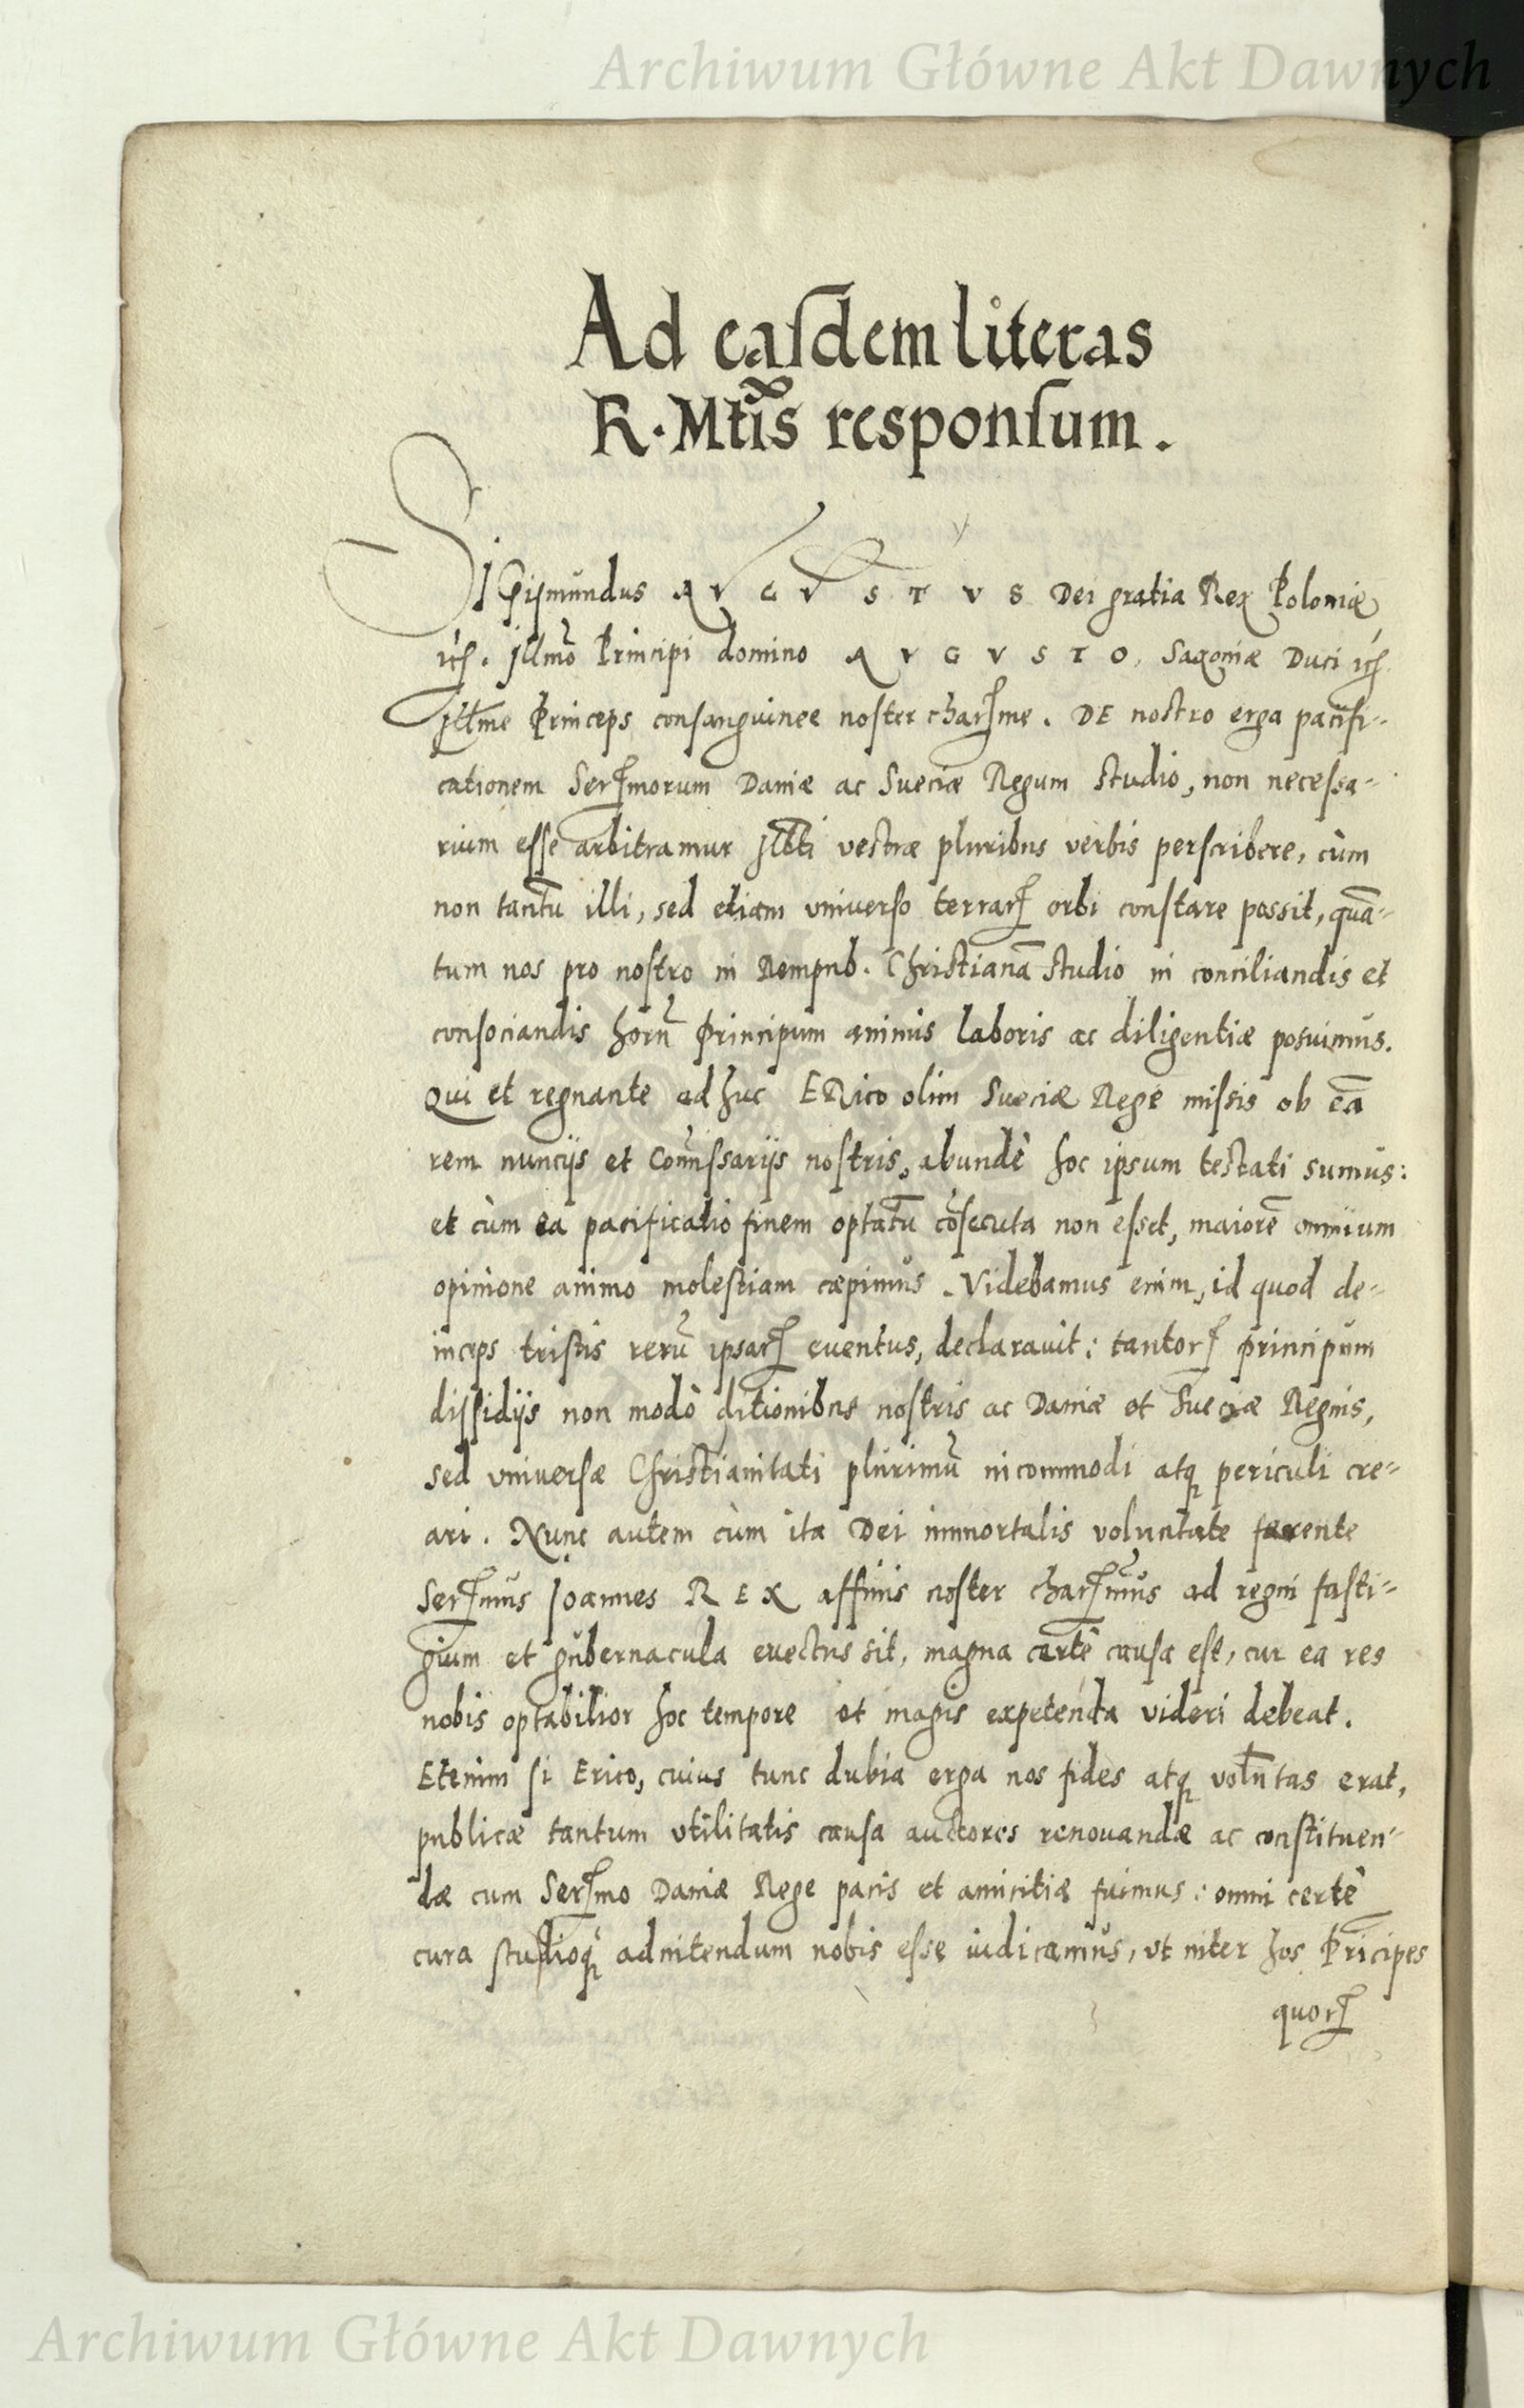 Archiwum Główne Akt Dawnych
Ad easdem literas
R. Mtis responsum.
SIGismundus AVGVSTVS Dei gratia Rex Poloniæ
etc. Illmo Principi domino AVGVSTO, Saxoniæ Duci etc.
Illme Princeps consanguinee noster charissme. DE nostro erga pacifi-
cationem Serissmorum Daniæ ac Sueciæ Regum studio, non necessa-
rium esse arbitramur Illti vestræ pluribus verbis perscribere, cùm
non tantũ illi, sed etiam vniuerso terrarꝝ orbi constare possit, quã-
tum nos pro nostro in Rempub. Christianã studio in conciliandis et
consociandis horũ Principum animis laboris ac diligentiæ posuimus.
Qui et regnante adhuc ERico olim Sueciæ Rege missis ob eã
rem nuncijs et Com̃issarijs nostris, abundè hoc ipsum testati sumus:
et cùm ea pacificatio finem optatũ cõsecuta non esset, maiorẽ omnium
opinione animo molestiam cæpimus. Videbamus enim, id quod de-
inceps tristis rerũ ipsarꝝ euentus, declarauit: tantorꝝ principum
dissidijs non modò ditionibus nostris ac Daniæ et Sueciæ Regnis,
sed vniuersæ Christianitati plurimũ incommodi atq; periculi cre-
ari. Nunc autem cùm ita Dei immortalis voluntate ferente
Serissmus Joannes REX affinis noster charissmus ad regni fasti-
gium et gubernacula euectus sit, magna certè causa est, cur ea res
nobis optabilior hoc tempore et magis expetenda videri debeat.
Etenim si Erico, cuius tunc dubia erga nos fides atq; volũtas erat,
publicæ tantum vtilitatis causa auctores renouandæ ac constituen-
dæ cum Serissmo Daniæ Rege pacis et amicitiæ fuimus: omni certè
cura studioq; adnitendum nobis esse iudicamus, vt inter hos Prĩcipes
quorꝝ
Archiwum Główne Akt Dawnych